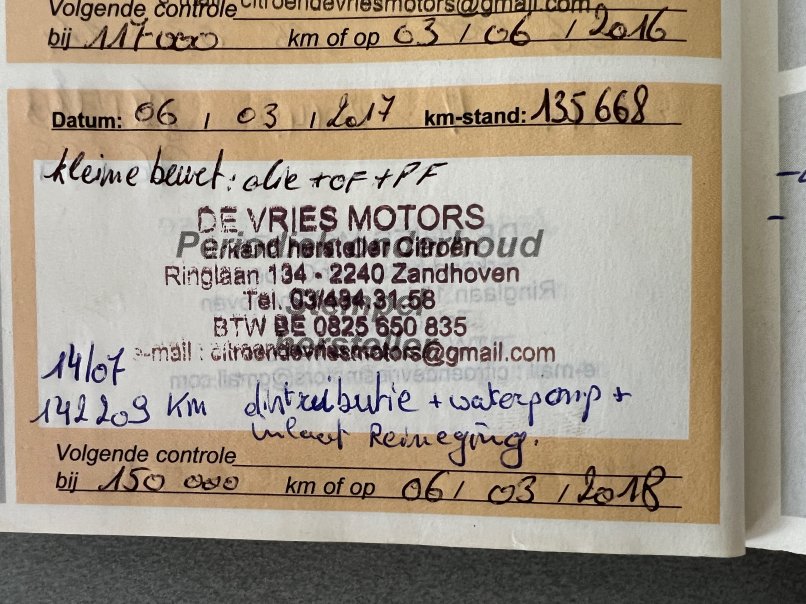 Volgende controle
bij 117000 km of op 03 / 06 / 2016
Datum: 06 / 03 / 2017 km-stand: 135668
kleine beurt: olie + OF + PF
DE VRIES MOTORS
Erkend hersteller Citroën
Ringlaan 134 - 2240 Zandhoven
Tel. 03/434 31 58
BTW BE 0825 650 835
e-mail : citroendevriesmotors@gmail.com
14/07
142209 km distributie + waterpomp +
inlaat Reiniging.
Volgende controle
bij 150 000 km of op 06 / 03 / 2018